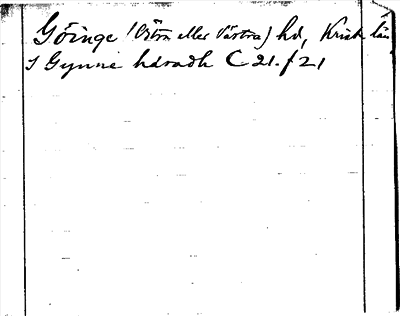 Göinge (Östra eller Västra) hd, Krist län
I Gynne hdradh C 21. f 21